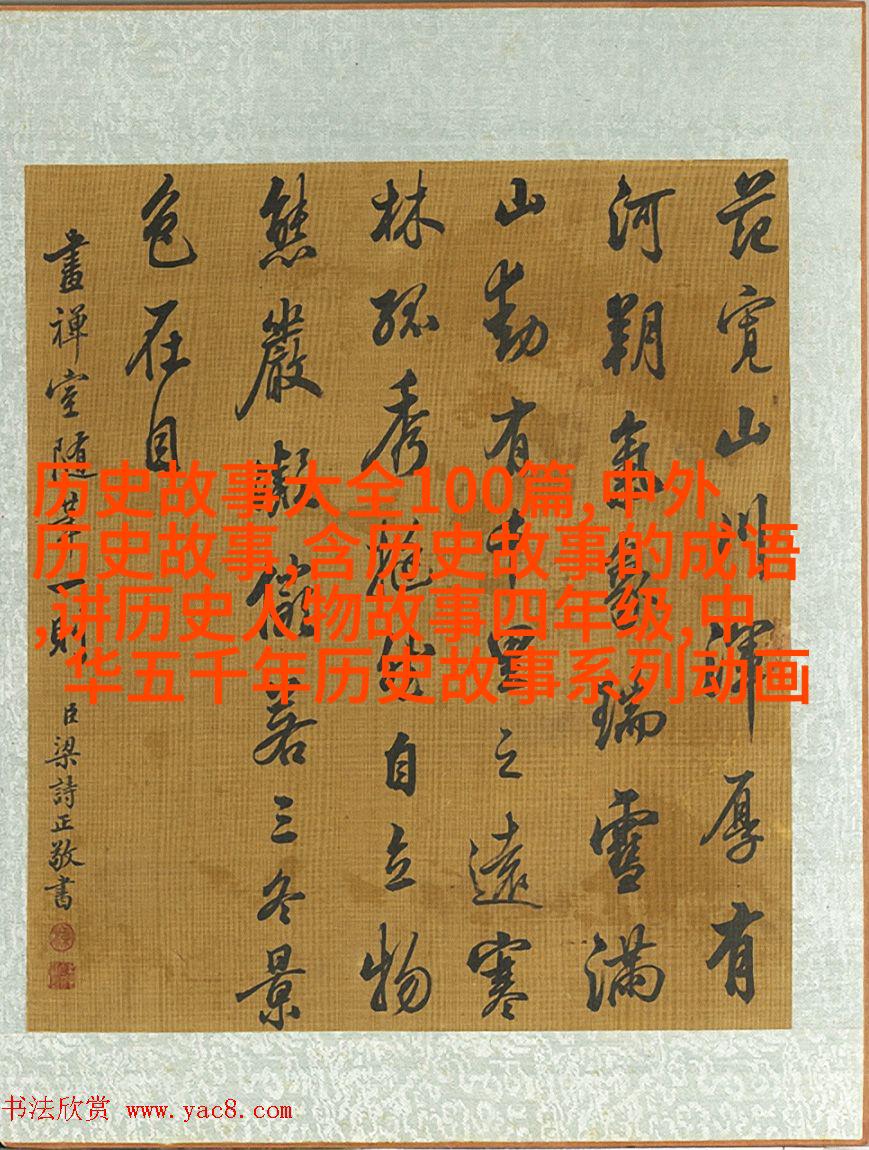 范寬山川渾厚有
河朔氣象瑞雪滿
山動有千里之遠寒
林孤秀挺然自立物
態嚴凝儼若三冬景
色在目
畫禪室隨筆一則 臣梁詩正敬書
历史故事大全100篇,中外
历史故事,含历史故事的成语
,讲历史人物故事四年级,中
华五千年历史故事系列动画
书法欣赏 www.yac8.com